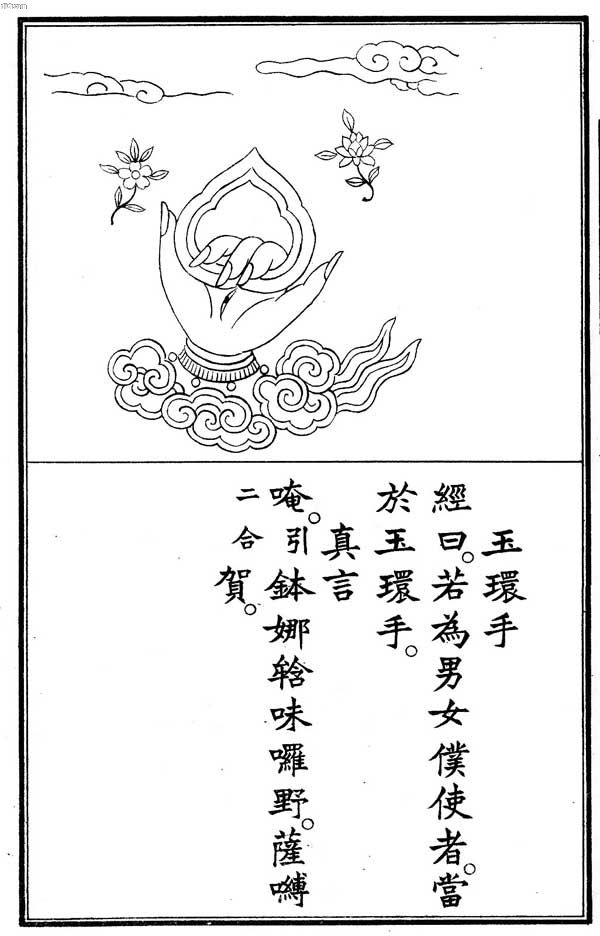 玉環手
經曰。若為男女僕使者。當
於玉環手。
真言
唵。引鉢娜𤚥味囉野。薩嚩
二合賀。